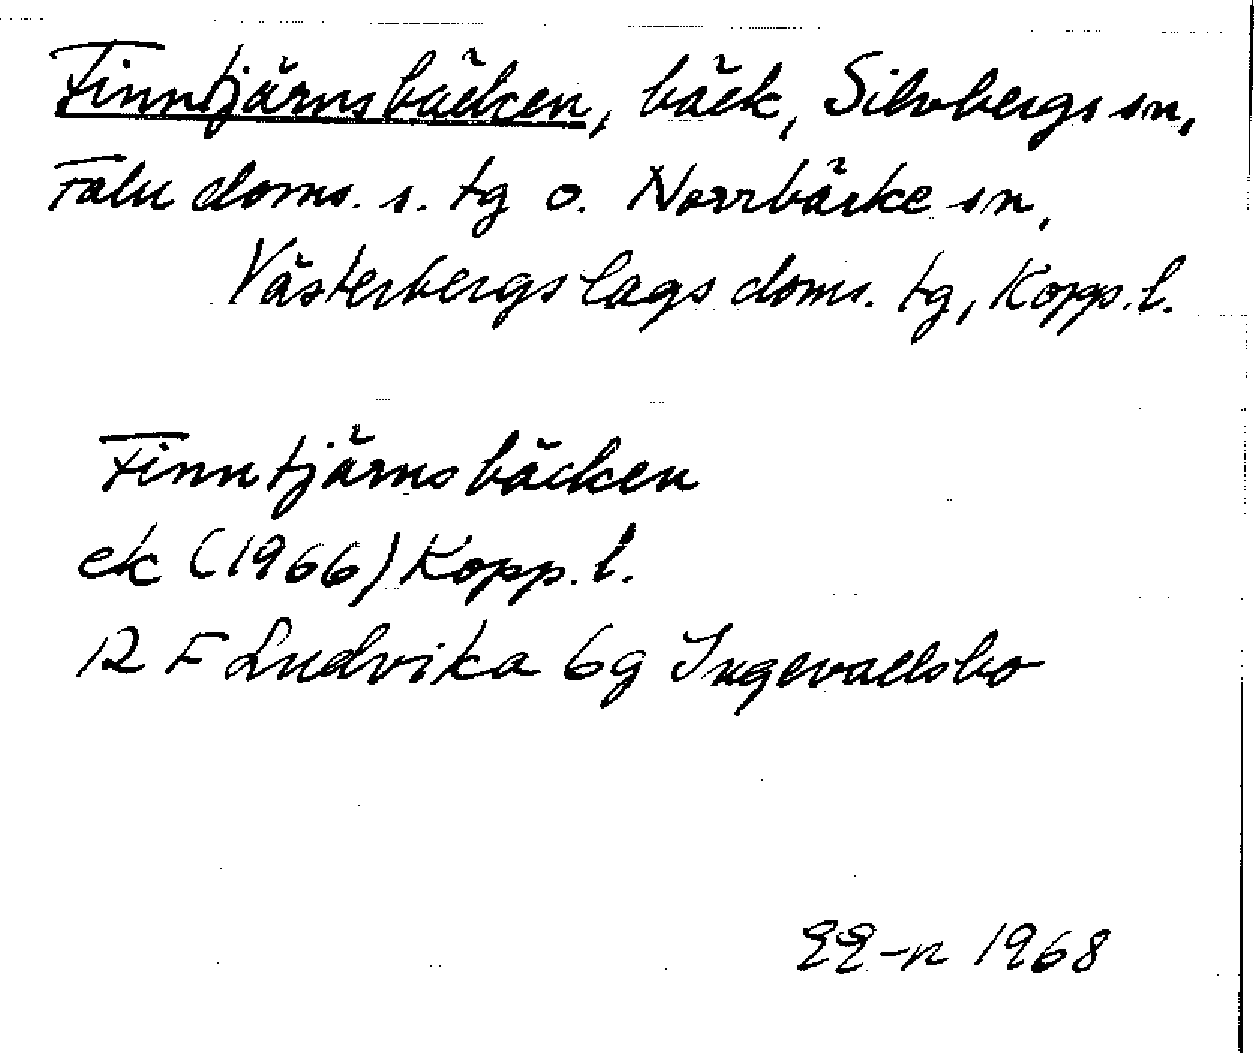 Finntjärnsbäcken, bäck, Silvbergs sn,
Falu doms. s. tg o. Norrbärke sn,
Västerbergslags doms. tg, Kopp. l.
Finntjärnsbäcken
ek (1966) Kopp. l.
12 F Ludvika 6g Ingevallsbo
EE-n 1968